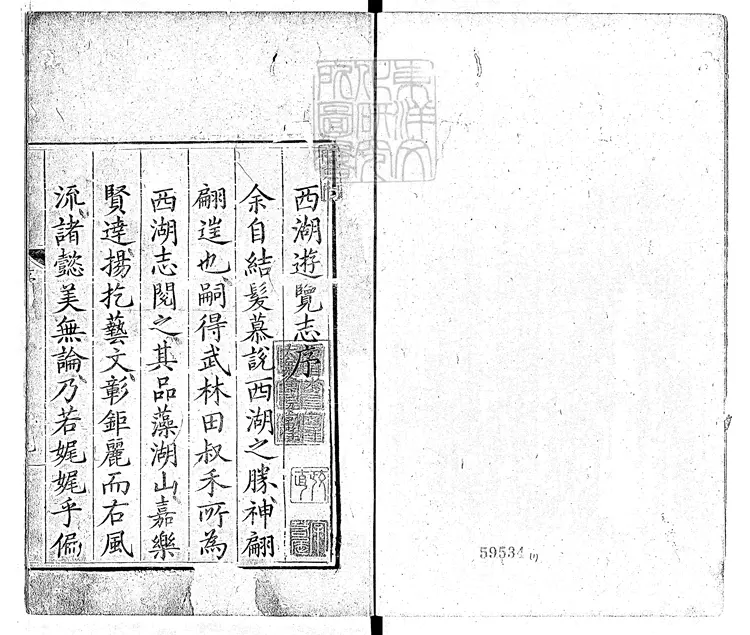 西湖遊覽志序
余自結髮慕說西湖之勝神翩
翩逞也嗣得武林田叔禾所為
西湖志閱之其品藻湖山嘉樂
賢達揚扢藝文彰鉅麗而右風
流諸懿美無論乃若娓娓乎偏
59534